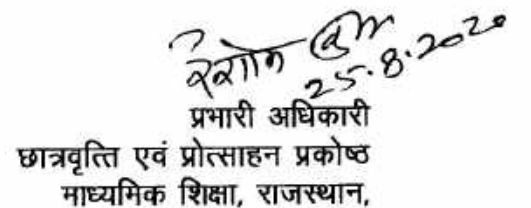 25.8.2020
प्रभारी अधिकारी
छात्रवृत्ति एवं प्रोत्साहन प्रकोष्ठ
माध्यमिक शिक्षा, राजस्थान,